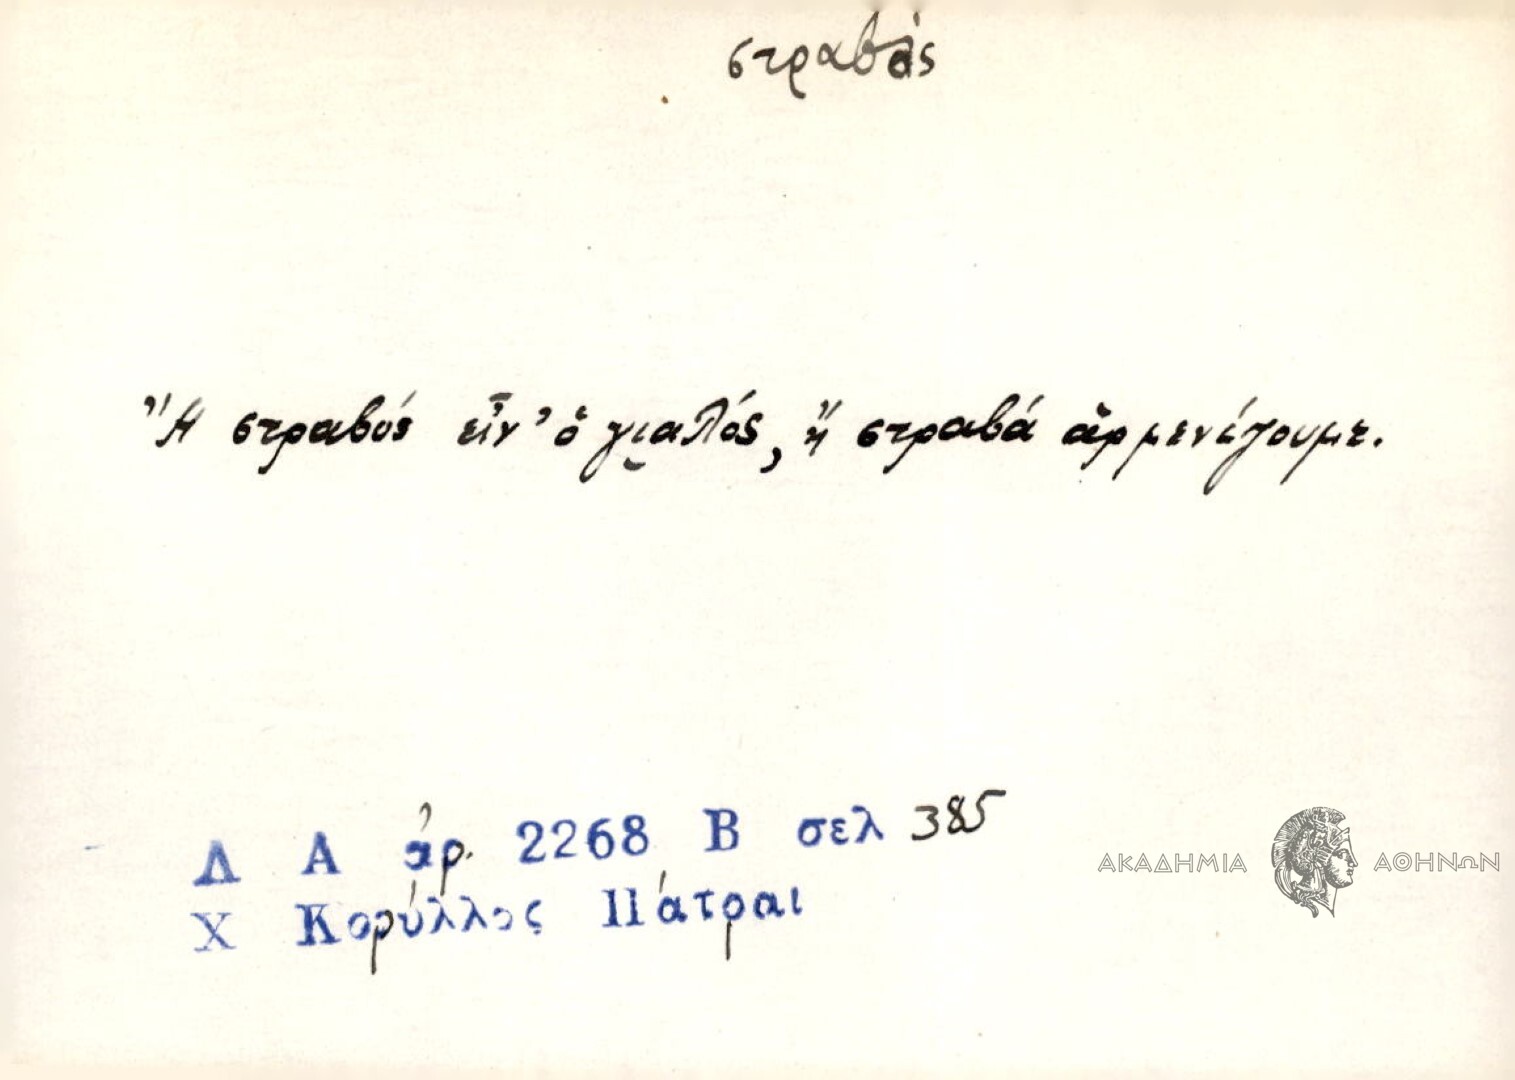 στραβός
Ἤ στραβός εἶν' ὁ γιαλός, ἤ στραβά ἀρμενίζουμε.
Λ Α ἀρ. 2268 Β σελ 385
Χ Κορύλλος Πάτραι
ΑΚΑΔΗΜΙΑ ΑΘΗΝΩΝ